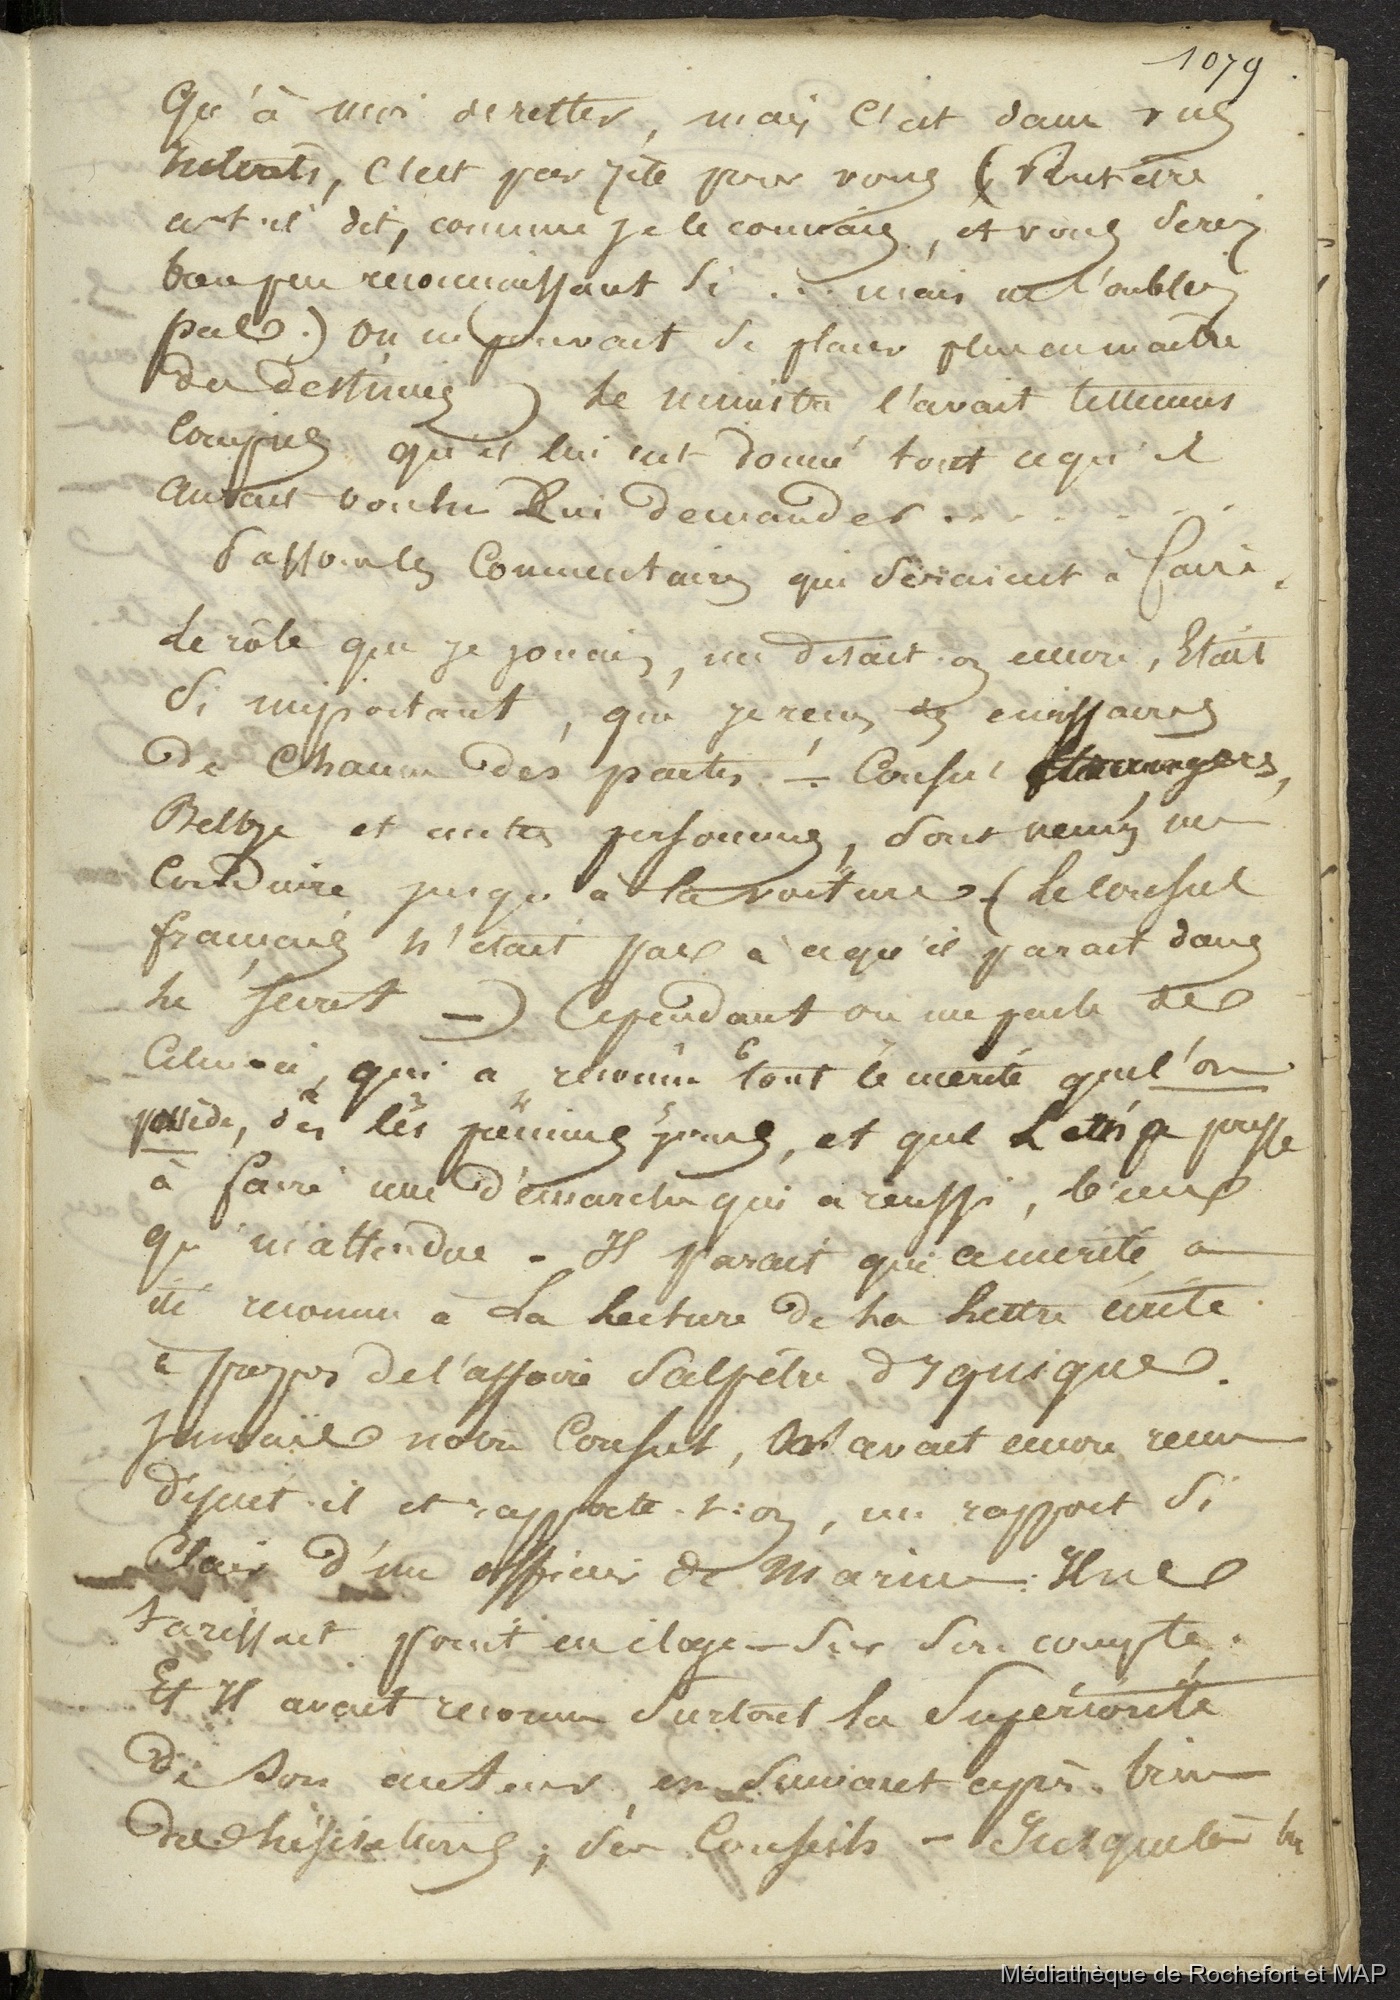 1079
Qu'à moi de rester, mais c'est dans vos
intérêts, c'est par pitié pour vous (Peut être
a-t-il dit, comme je le connais, et vous seriez
bien peu reconnaissant si ... mais ne l'oubliez
pas.) On ne pouvait se placer plus en maître
des destinées) Le ministre l'avait tellement
compris qu'il lui eut donné tout ce qu'il
aurait voulu lui demander . . . . . . .
Passons les commentaires qui seraient à faire.
Le rôle que je jouais, me disait-on encore, était
si important, que je reçus des émissaires
de chacun des partis. - Consul étrangers,
Belge et autres personnes, sont venus me
conduire jusqu'à la voiture - (Le consul
français n'était pas à ce qu'il parait dans
le secret -) Cependant on me parle de
celui-ci, qui a reconnu tout le mérite que l'on
possède, dès les premiers jours, et que l'on a poussé
à faire une démarche qui a réussi, bien
qu'inattendue - Il parait que ce mérite a
été reconnu à la lecture de la lettre écrite
à propos de l'affaire Salpêtre d'Iquique.
Jamais notre Consul, n'avait encore reçu
disait-il et rapporte-t-on, un rapport si
clair d'un officier de Marine. Il ne
tarissait point en éloge - sur son compte.
Et Il avait reconnu surtout la supériorité
de son auteur, en suivant après bien
des hésitations, ses conseils - Jusque là le